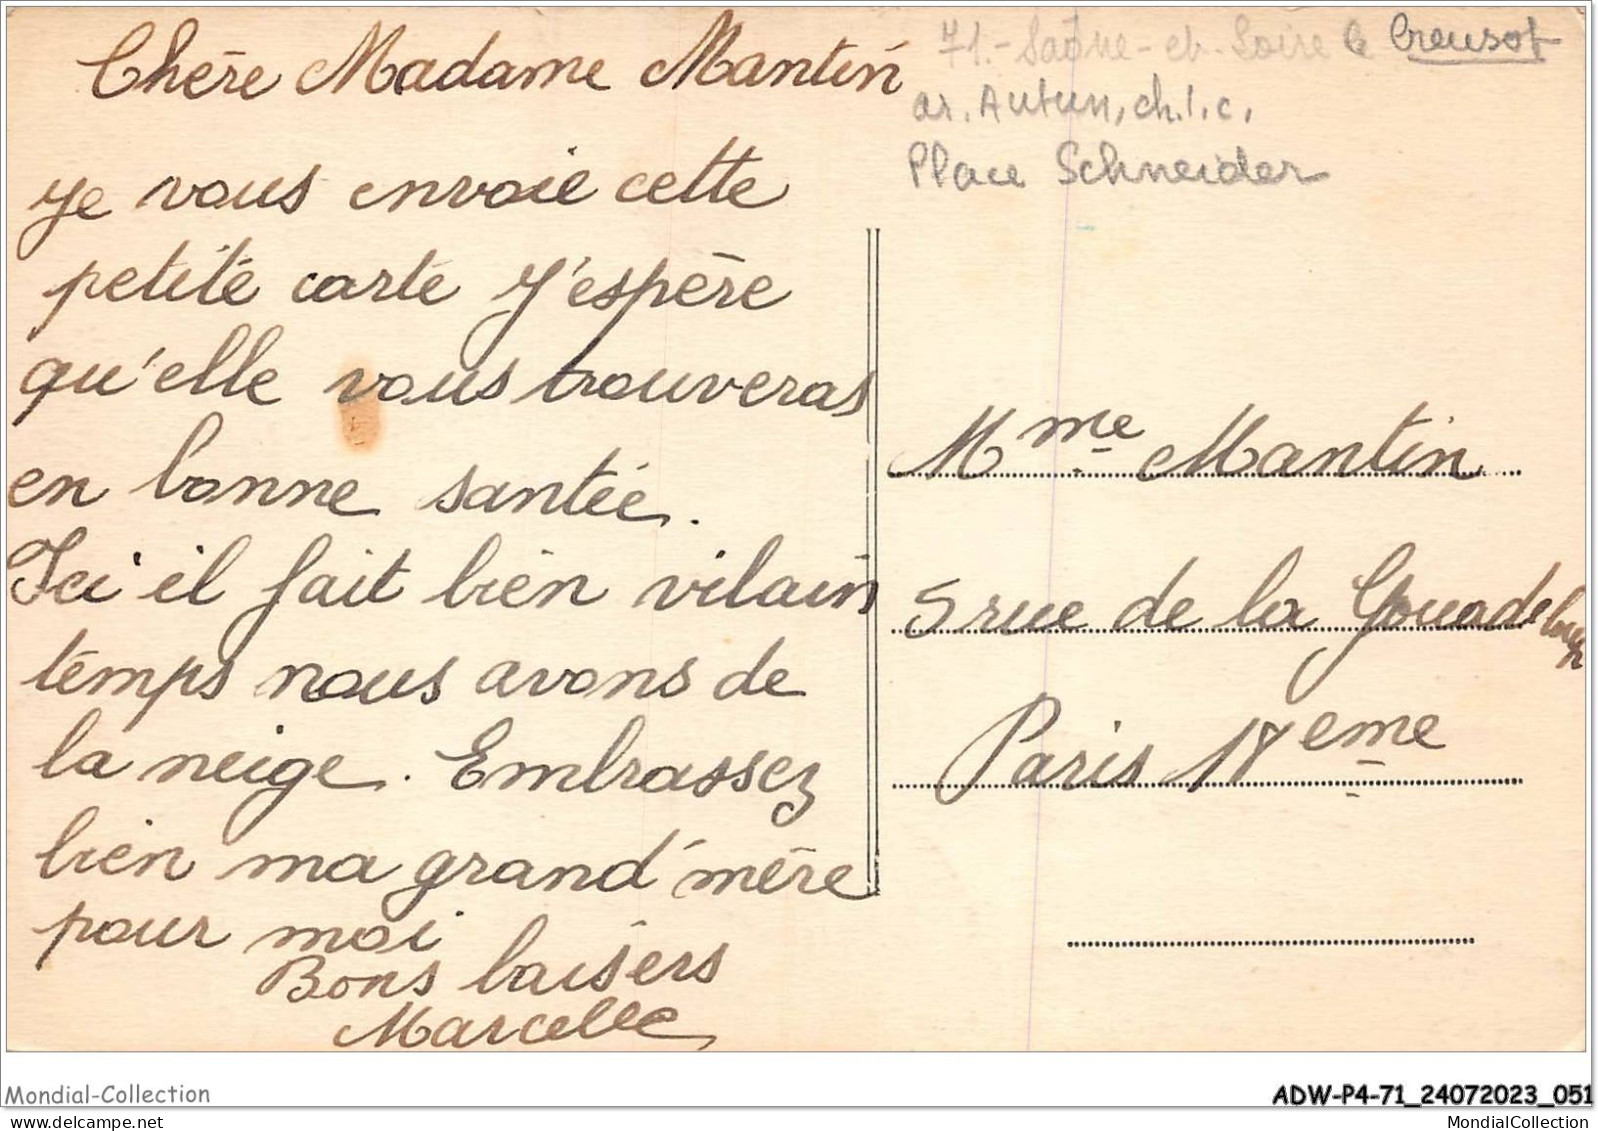 Chère Madame Mantin
Je vous envoie cette
petite carte J'espère
qu'elle vous trouveras
en bonne santée.
Ici il fait bien vilain
temps nous avons de
la neige. Embrassez
bien ma grand'mère
pour moi
Bons baisers
Marcelle
71.- Saône-et-Loire le Creusot
ar. Autun, ch.l.c,
Place Schneider
Mme Mantin
5 rue de la Gouadeloupe
Paris 18eme
Mondial-Collection
ADW-P4-71_24072023_051
www.mondial-collection.com
MondialCollection